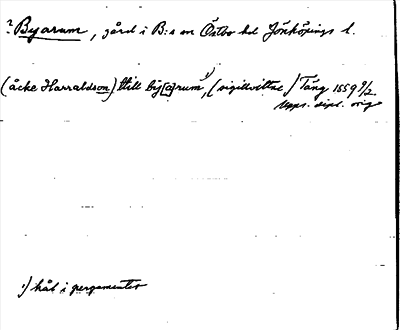 ? Byarum, gård i B:s sn Östbo hd Jönköpings l.
(åcke Harraldson) ttill bij[a]rum¹⁾, (sigillvittne) Tång 1559 9/2.
Upps. dipl. orig
¹⁾ hål i pergamentet